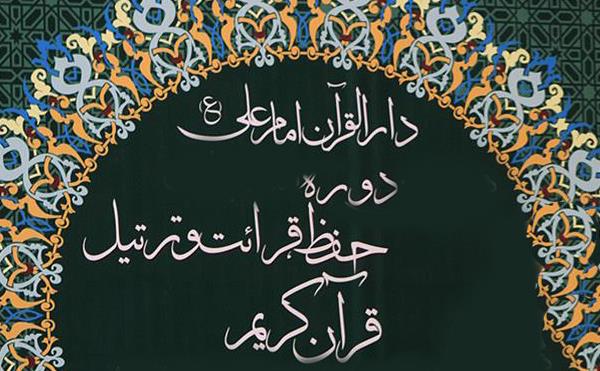 دارالقرآن امام علی (ع)
دوره
حفظ قرائت و ترتیل
قرآن کریم